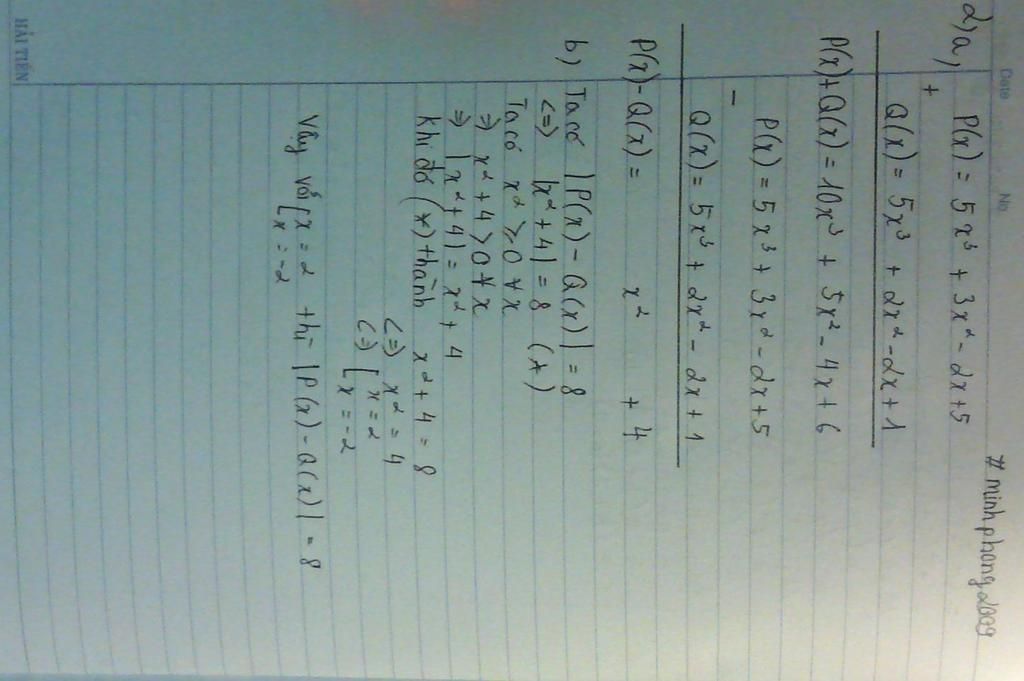 Date No
# minhphong2009
2) a,
P(x) = 5x³ + 3x² - 2x + 5
+
Q(x) = 5x³ + 2x² - 2x + 1
P(x) + Q(x) = 10x³ + 5x² - 4x + 6
P(x) = 5x³ + 3x² - 2x + 5
-
Q(x) = 5x³ + 2x² - 2x + 1
P(x) - Q(x) = x² + 4
b) Ta có |P(x) - Q(x)| = 8
<=> |x² + 4| = 8 (*)
Ta có x² ≥ 0 ∀x
=> x² + 4 > 0 ∀x
=> |x² + 4| = x² + 4
Khi đó (*) thành x² + 4 = 8
<=> x² = 4
<=> [ x = 2
x = -2
Vậy với [ x = 2 thì |P(x) - Q(x)| = 8
x = -2
HẢI TIẾN